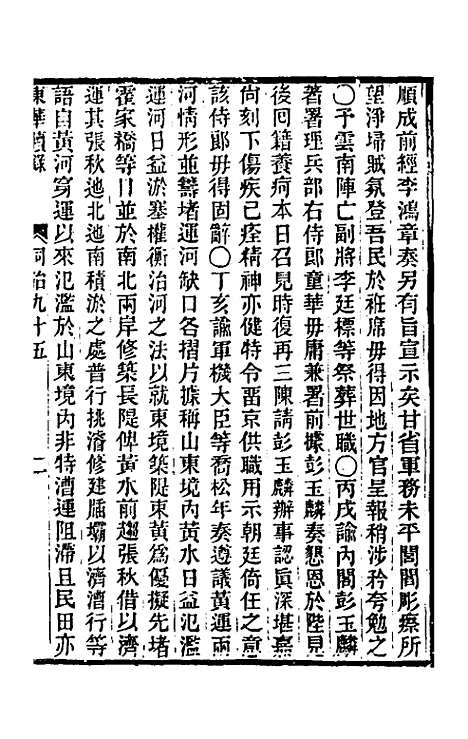 順成前經李鴻章奏另有旨宣示矣甘省軍務未平閭閻彫瘵所
望淨埽賊氛登吾民於袵席毋得因地方官呈報稍涉矜夸勉之
〇予雲南陣亡副將李廷標等祭葬世職〇丙戌諭內閣彭玉麟
著署理兵部右侍郎童華毋庸兼署前據彭玉麟奏懇恩於陛見
後回籍養疴本日召見時復再三陳請彭玉麟辦事認眞深堪嘉
尙刻下傷疾已痊精神亦健特令畱京供職用示朝廷倚任之意
該侍郎毋得固辭〇丁亥諭軍機大臣等喬松年奏遵議黃運兩
河情形並籌堵運河缺口各摺片據稱山東境內黃水日益氾濫
運河日益淤塞權衡治河之法以就東境築隄束黃爲優擬先堵
霍家橋等口並於南北兩岸修築長隄俾黃水前趨張秋借以濟
運其張秋迤北迤南積淤之處普行挑濬修建牐壩以濟漕行等
語自黃河穿運以來氾濫於山東境內非特漕運阻滯且民田亦
東華續錄 同治九十五 二